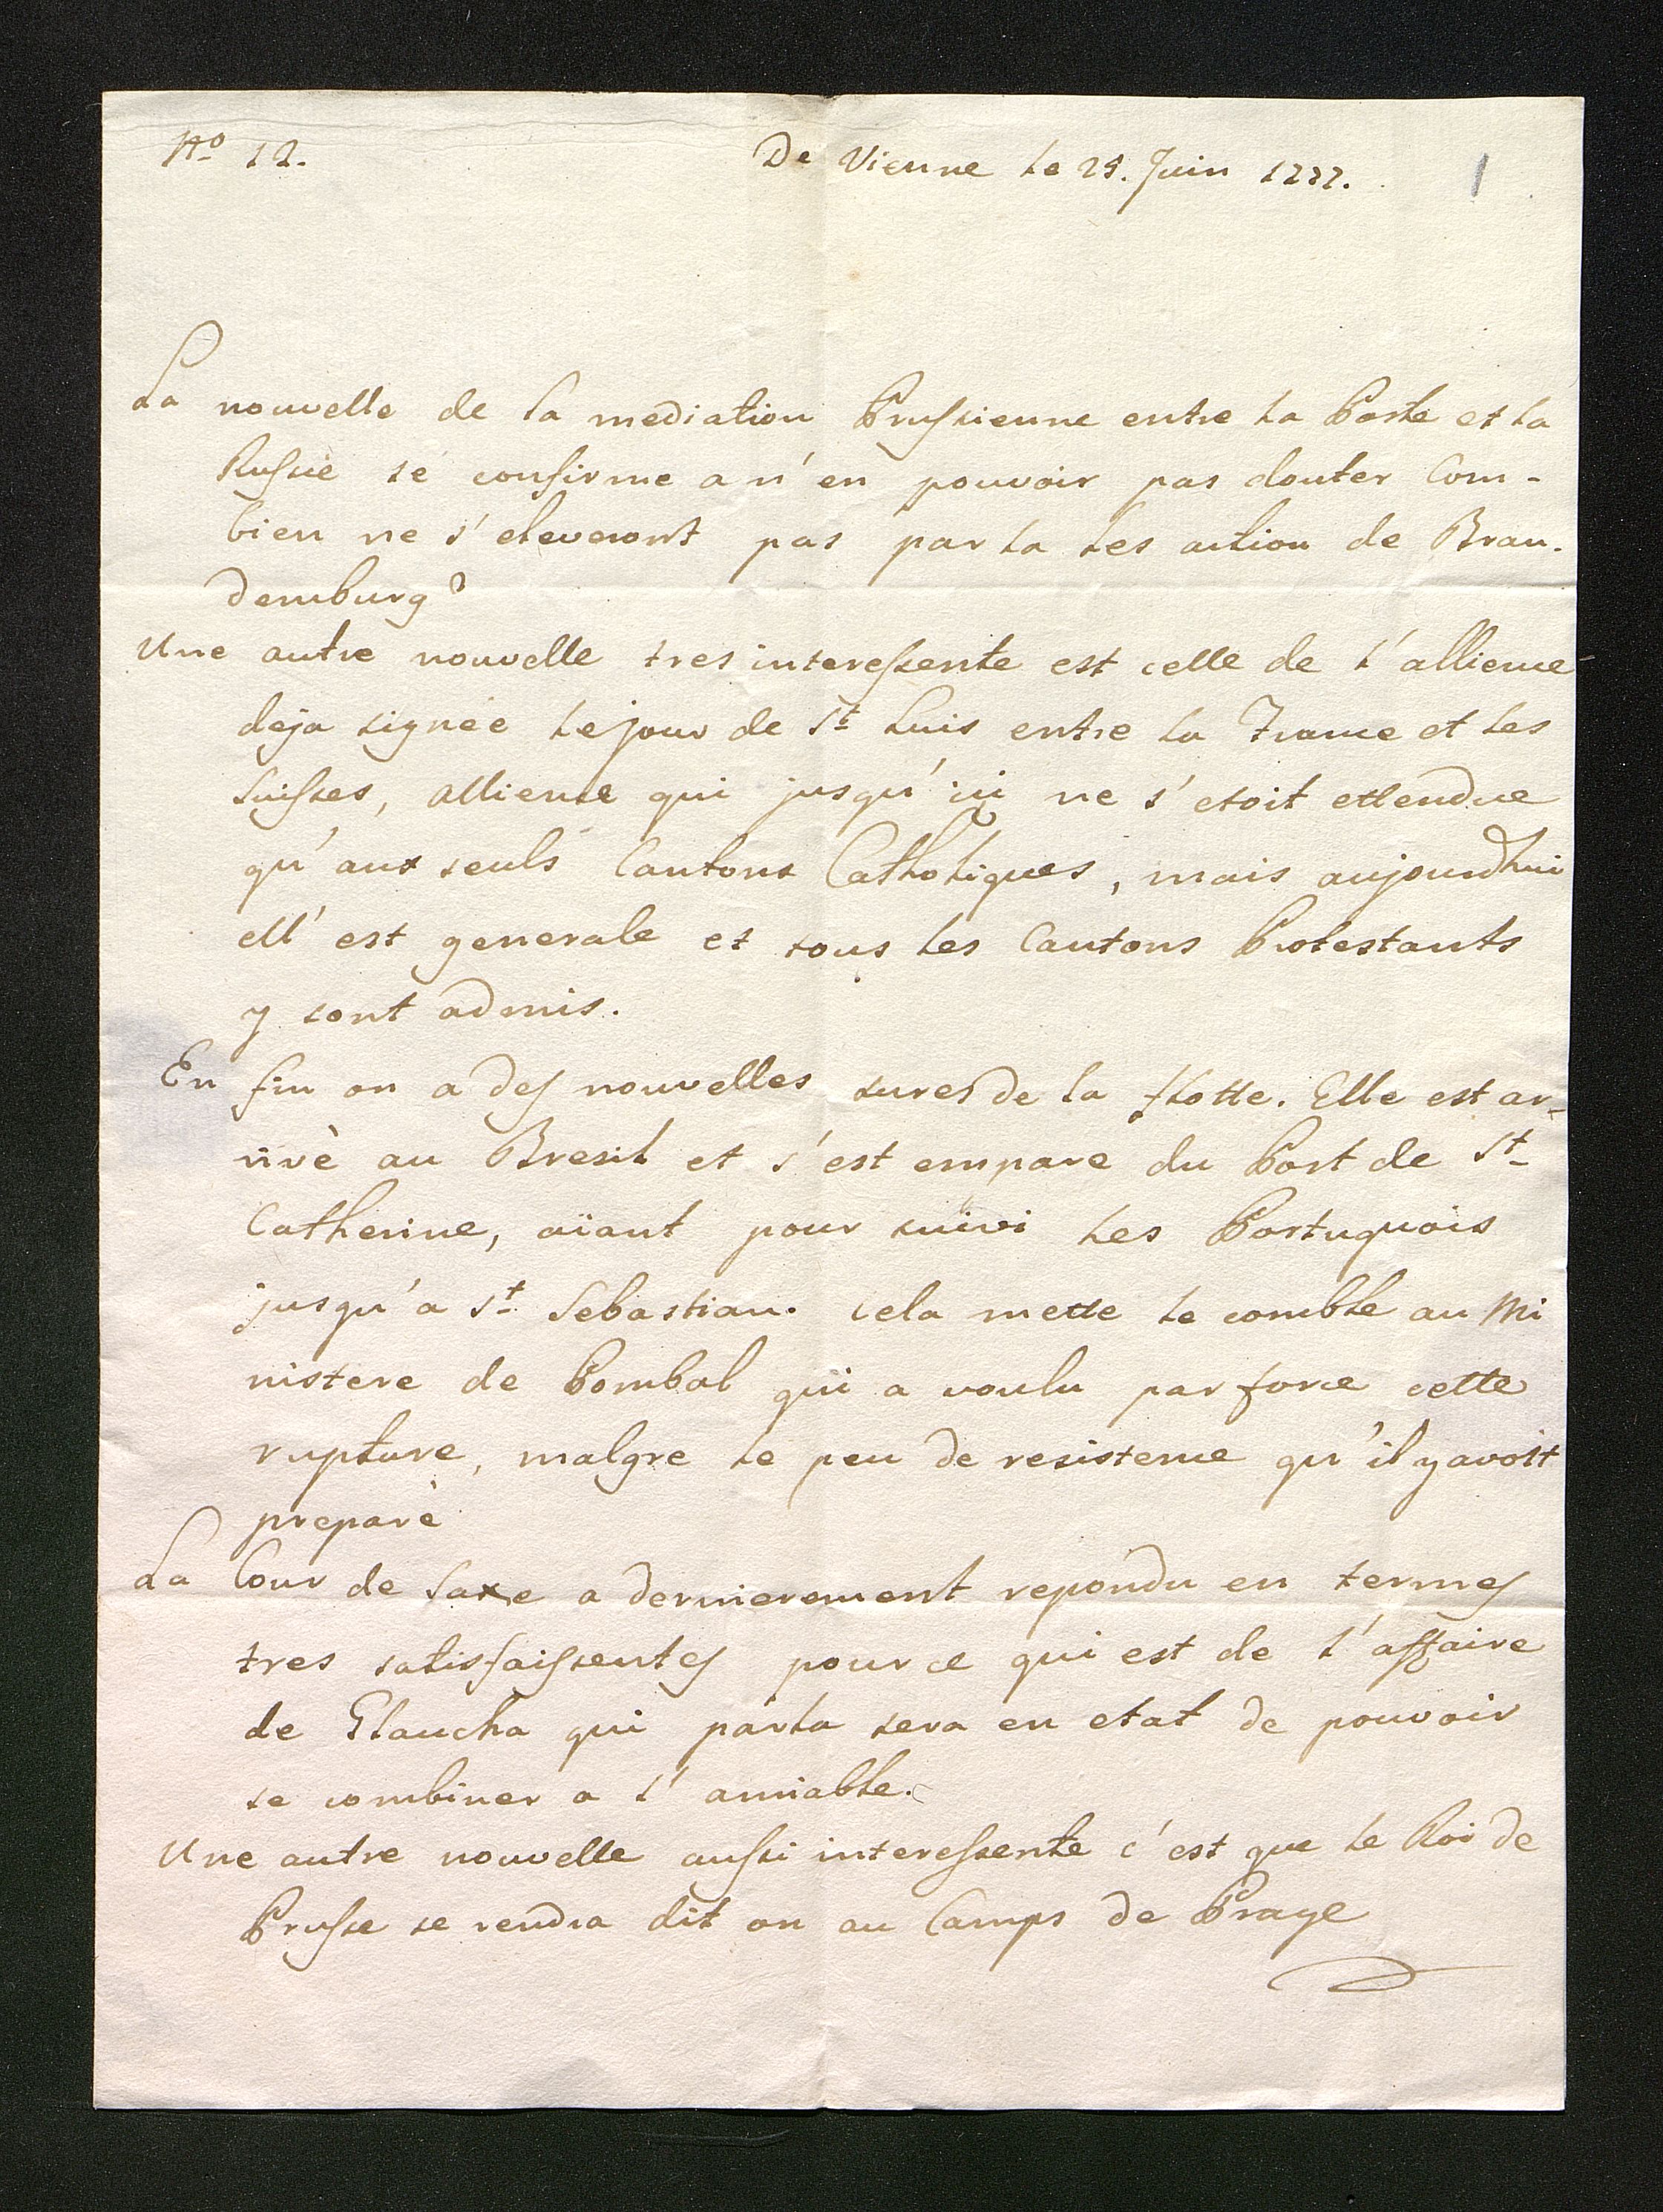 No 12. De Vienne le 25. Juin 1777. 1
La nouvelle de la mediation Prussienne entre la Porte et la
Russie se confirme a n'en pouvoir pas douter Com-
bien ne s'eleveront pas par la les action de Bran-
demburg?
Une autre nouvelle tres interessente est celle de l'allience
deja signée le jour de St Luis entre la France et les
Suisses, allience qui jusqu'ici ne s'etoit ettendue
qu'aux seuls Cantons Catholiques, mais aujourdhui
ell'est generale et tous les Cantons Protestants
y sont admis.
En fin on a des nouvelles sures de la flotte. Elle est ar-
rivè au Bresil et s'est empare du Port de St
Catherine, aïant pour suivi les Portuguois
jusqu'a St Sebastian. cela mette le comble au Mi
nistere de Pombal qui a voulu par force cette
rupture, malgre le peu de resistence qu'il y avoit
preparè
La Cour de Saxe a dernierement repondu en termes
tres satisfaissentes pour ce qui est de l'affaire
de Glaucha qui par la sera en etat de pouvoir
se combiner a l'amiable.
Une autre nouvelle aussi interessente c'est que le Roi de
Prusse se rendra dit on au Camps de Prage